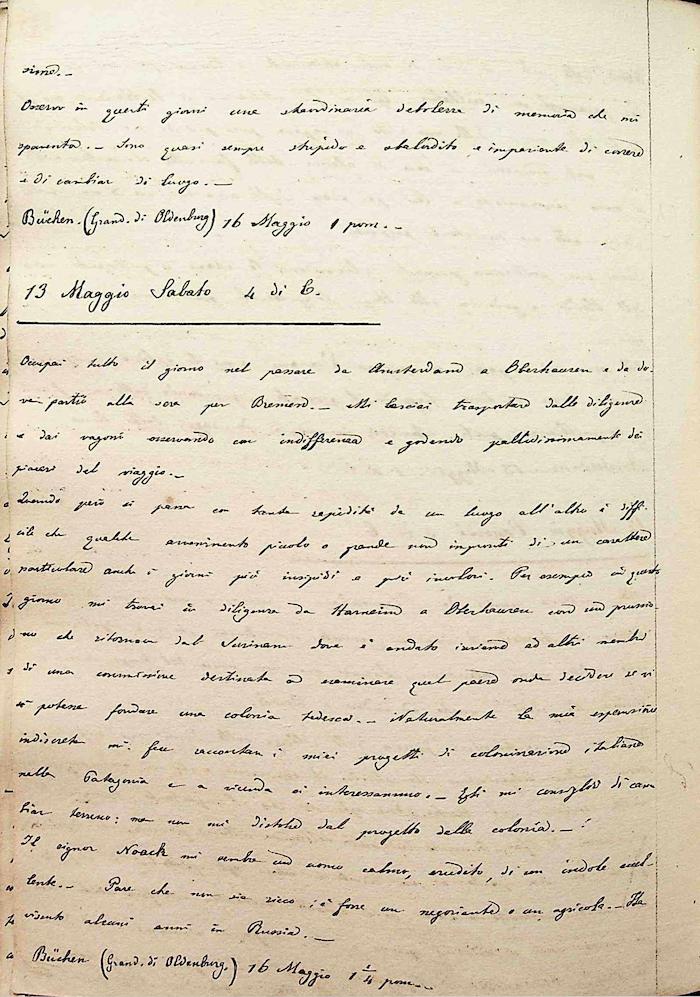 simo. -
Osservo in questi giorni una straordinaria debolezza di memoria che mi
spaventa. - Sono quasi sempre stupido e sbalordito e impaziente di correre
e di cambiar di luogo. -
Büchen. (Grand. di Oldenburg) 16 Maggio 1 pom. -
13 Maggio Sabato 4 di C.
Occupai tutto il giorno nel passare da Amsterdam a Oberhausen e da do-
ve partii alla sera per Bremen. - Mi lasciai trasportare dalle diligenze
e dai vagoni osservando con indifferenza e godendo pallidissimamente dei
piaceri del viaggio. -
Quando però si passa con tanta rapidità da un luogo all'altro è diffi-
cile che qualche avvenimento piccolo o grande non impronti di un carattere
particolare anche i giorni più insipidi e più incolori. Per esempio in questo
giorno mi trovai in diligenza da Harneim a Oberhausen con un prussia-
no che ritornava dal Surinam dove è andato insieme ad altri membri
di una commissione destinata ad esaminare quel paese onde decidere se vi
si potesse fondare una colonia tedesca. - Naturalmente la mia espansione
indiscreta mi fece raccontar i miei progetti di colonizzazione italiana
nella Patagonia e a vicenda ci interessammo. - Egli mi consigliò di cam-
biar terreno: ma non mi distolse dal progetto della colonia. - !
Il signor Noack mi sembra un uomo calmo, erudito, di un indole eccel-
lente. - Pare che non sia ricco: è forse un negoziante o un agricola. - Ha
vissuto alcuni anni in Russia. -
Büchen (Grand. di Oldenburg.) 16 Maggio 1 1/4 pom. -